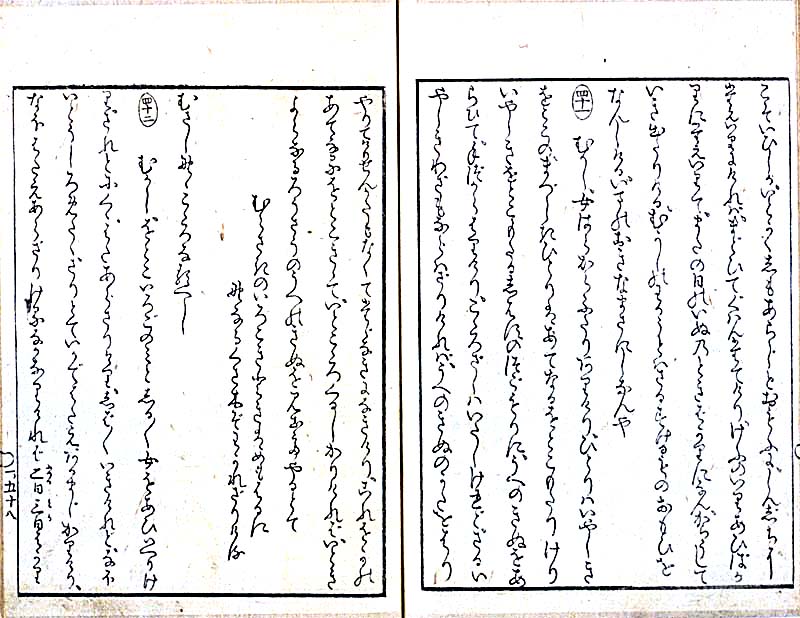 こそいひしかいとかくしもあらじとおもふにしんじちに
たえいりにければまどひてぐはんたてけりけふのいりあひばか
りにたえいりてまたの日のいぬのときばかりになんからうして
いき出たりけるむかしのわか人はさるすけるものおもひを
なんしけるいまのおきなまさにしなんや
四十一 むかし女はらからふたりありけりひとりはいやしき
をとこのまづしきひとりはあてなるをとこもたりけり
いやしきをとこもたるしはすのつごもりにうへのきぬをあ
らひててづからはりけりこころざしはいたしけれどさるい
やしきわざもならはざりければうへのきぬのかたをはり
やりてけりせんかたもなくてたゞなきになきけりこれをかの
あてなるをとこきゝていとこころくるしかりければいときよ
らなるろうさうのうへのきぬを見出てやるとて
むらさきのいろこきときはめもはるに
野なるくさ木ぞわかれざりける
むさし野のこころなるべし
四十二 むかしをとこいろごのみとしるしる女をあひいへりけ
りされどにくゝはたあらざりけりしば〳〵いきけれどなほ
いとうしろめたくさりとていかではたえあるまじかりけり
なほはたえあらざりけるなかなりければ二日三日ばかり
ふつか みか
一ノ五十八